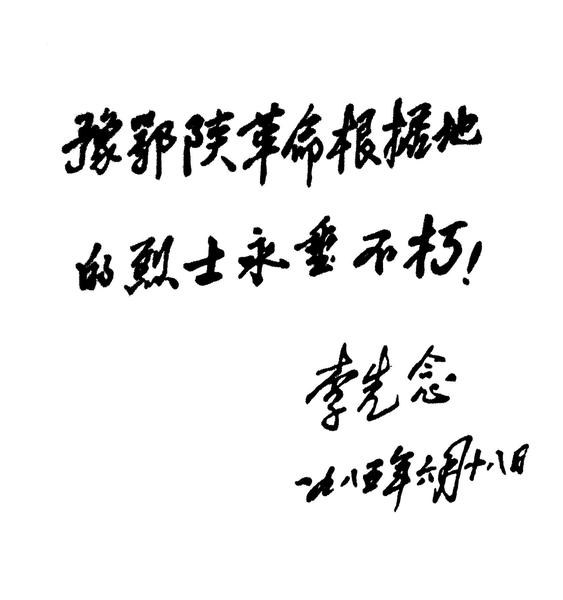 豫鄂陕革命根据地
的烈士永垂不朽!
李先念
一九八五年六月十八日